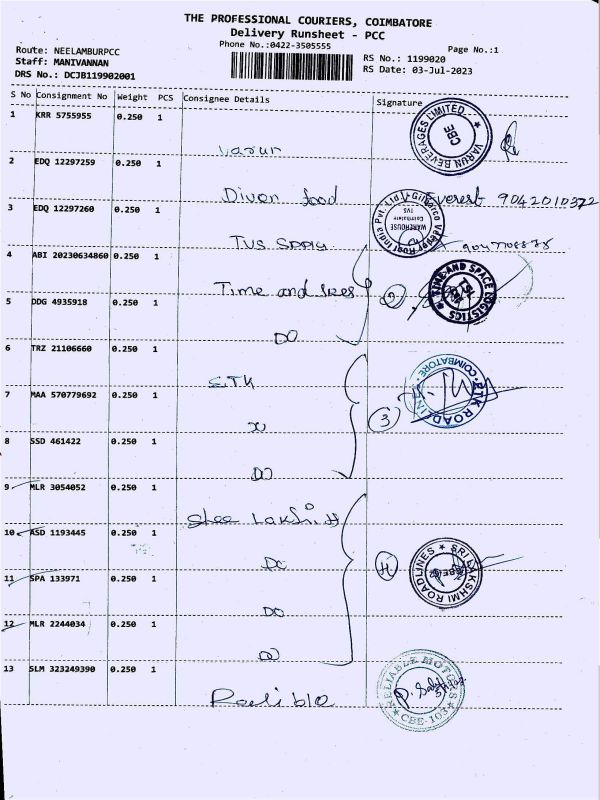 THE PROFESSIONAL COURIERS, COIMBATORE
Delivery Runsheet - PCC
Phone No.:0422-3505555
Page No.:1
Route: NEELAMBURPCC
Staff: MANIVANNAN
DRS No.: DCJB119902001
RS No.: 1199020
RS Date: 03-Jul-2023
S No Consignment No Weight PCS Consignee Details Signature
1 KRR 5755955 0.250 1
Varun
VARUN BEVERAGES LIMITED CBE
2 EDQ 12297259 0.250 1
Diven food Everest 9042010372
3 EDQ 12297260 0.250 1
TVS
Gilbarco Veeder Root India Pvt. Ltd WAREHOUSE Coimbatore TVS
4 ABI 20230634860 0.250 1
Time and
2
TIME AND SPACE LOGISTICS
5 DDG 4935918 0.250 1
DO
6 TRZ 21106660 0.250 1
STK
7 MAA 570779692 0.250 1
3
STK ROADLINE COIMBATORE
8 SSD 461422 0.250 1
DO
9 MLR 3054052 0.250 1
Shee
10 ASD 1193445 0.250 1
DO
4
SRI LAKSHMI ROADLINES
11 SPA 133971 0.250 1
DO
12 MLR 2244034 0.250 1
DO
13 SLM 323249390 0.250 1
RELIABLE MOTORS CBE-103